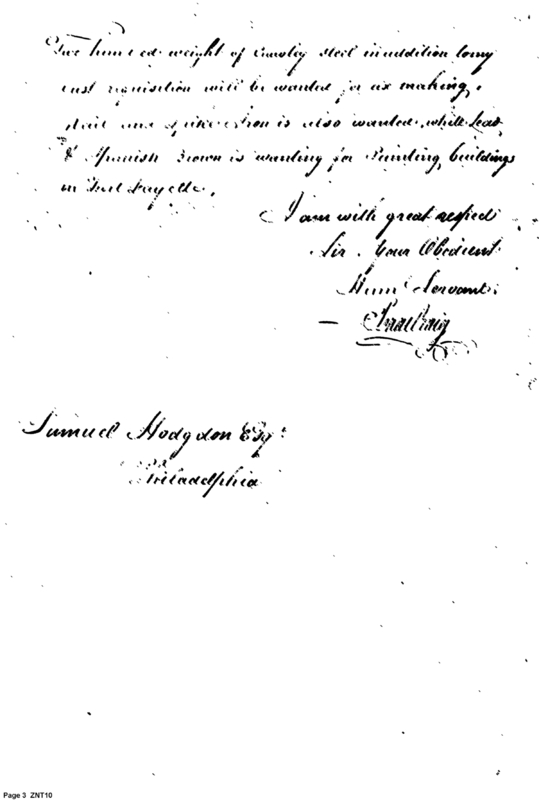 Two hundred weight of Crawley steel in addition to my
last requisition will be wanted for ax making,
Nail and spike Iron is also wanted, white Lead
& Spanish Brown is wanting for Painting buildings
in Fort Fayette.
I am with great respect
Sir. Your Obedient
Hum Servant.
Isaac Craig
Samuel Hodgdon Esqr.
Philadelphia
Page 3 ZNT10